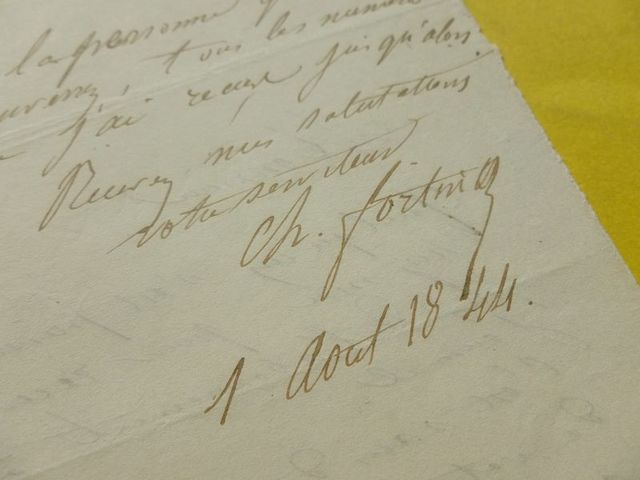 la personne q
tous les numéro
j'ai reçus jusqu'alors.
Recevez mes salutations
votre serviteur
Ch. fortin
1 Aout 1844.